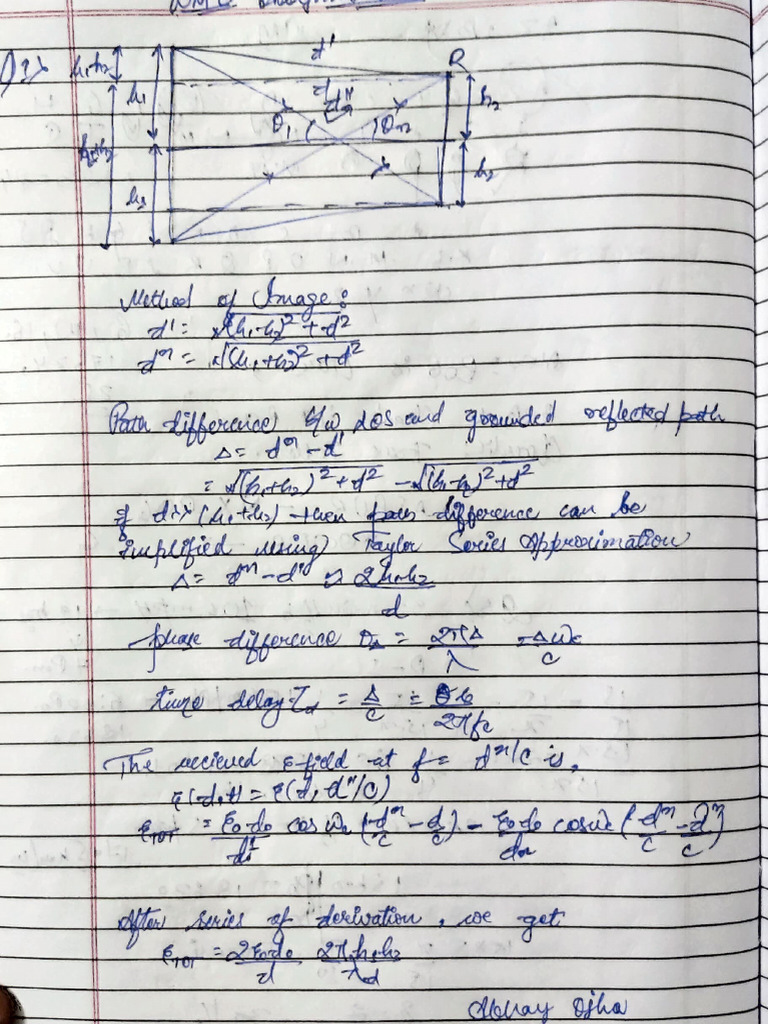 h1-h2
h1
h1+h2
h2
d'
d
d''
R
θi
h2
h2
Method of Image:
d' = √(h1-h2)² + d²
d'' = √(h1+h2)² + d²
Path difference b/w LOS and grounded reflected path
Δ = d'' - d'
= √(h1+h2)² + d² - √(h1-h2)² + d²
if d>>(h1+h2) then path difference can be
simplified using Taylor Series Approximation
Δ = d'' - d' ≈ 2h1h2/d
phase difference θΔ = 2πΔ/λ = Δωc/c
time delay τd = Δ/c = θΔ/2πfc
The recieved E-field at t = d''/c is,
E(d,t) = E(d, d''/c)
ETOT = E0d0/d' cos ωc (d''/c - d'/c) - E0d0/d'' cos ωc (d''/c - d''/c)
After series of derivation, we get
ETOT = 2E0d0/d 2πh1h2/λd
Abhay Ojha